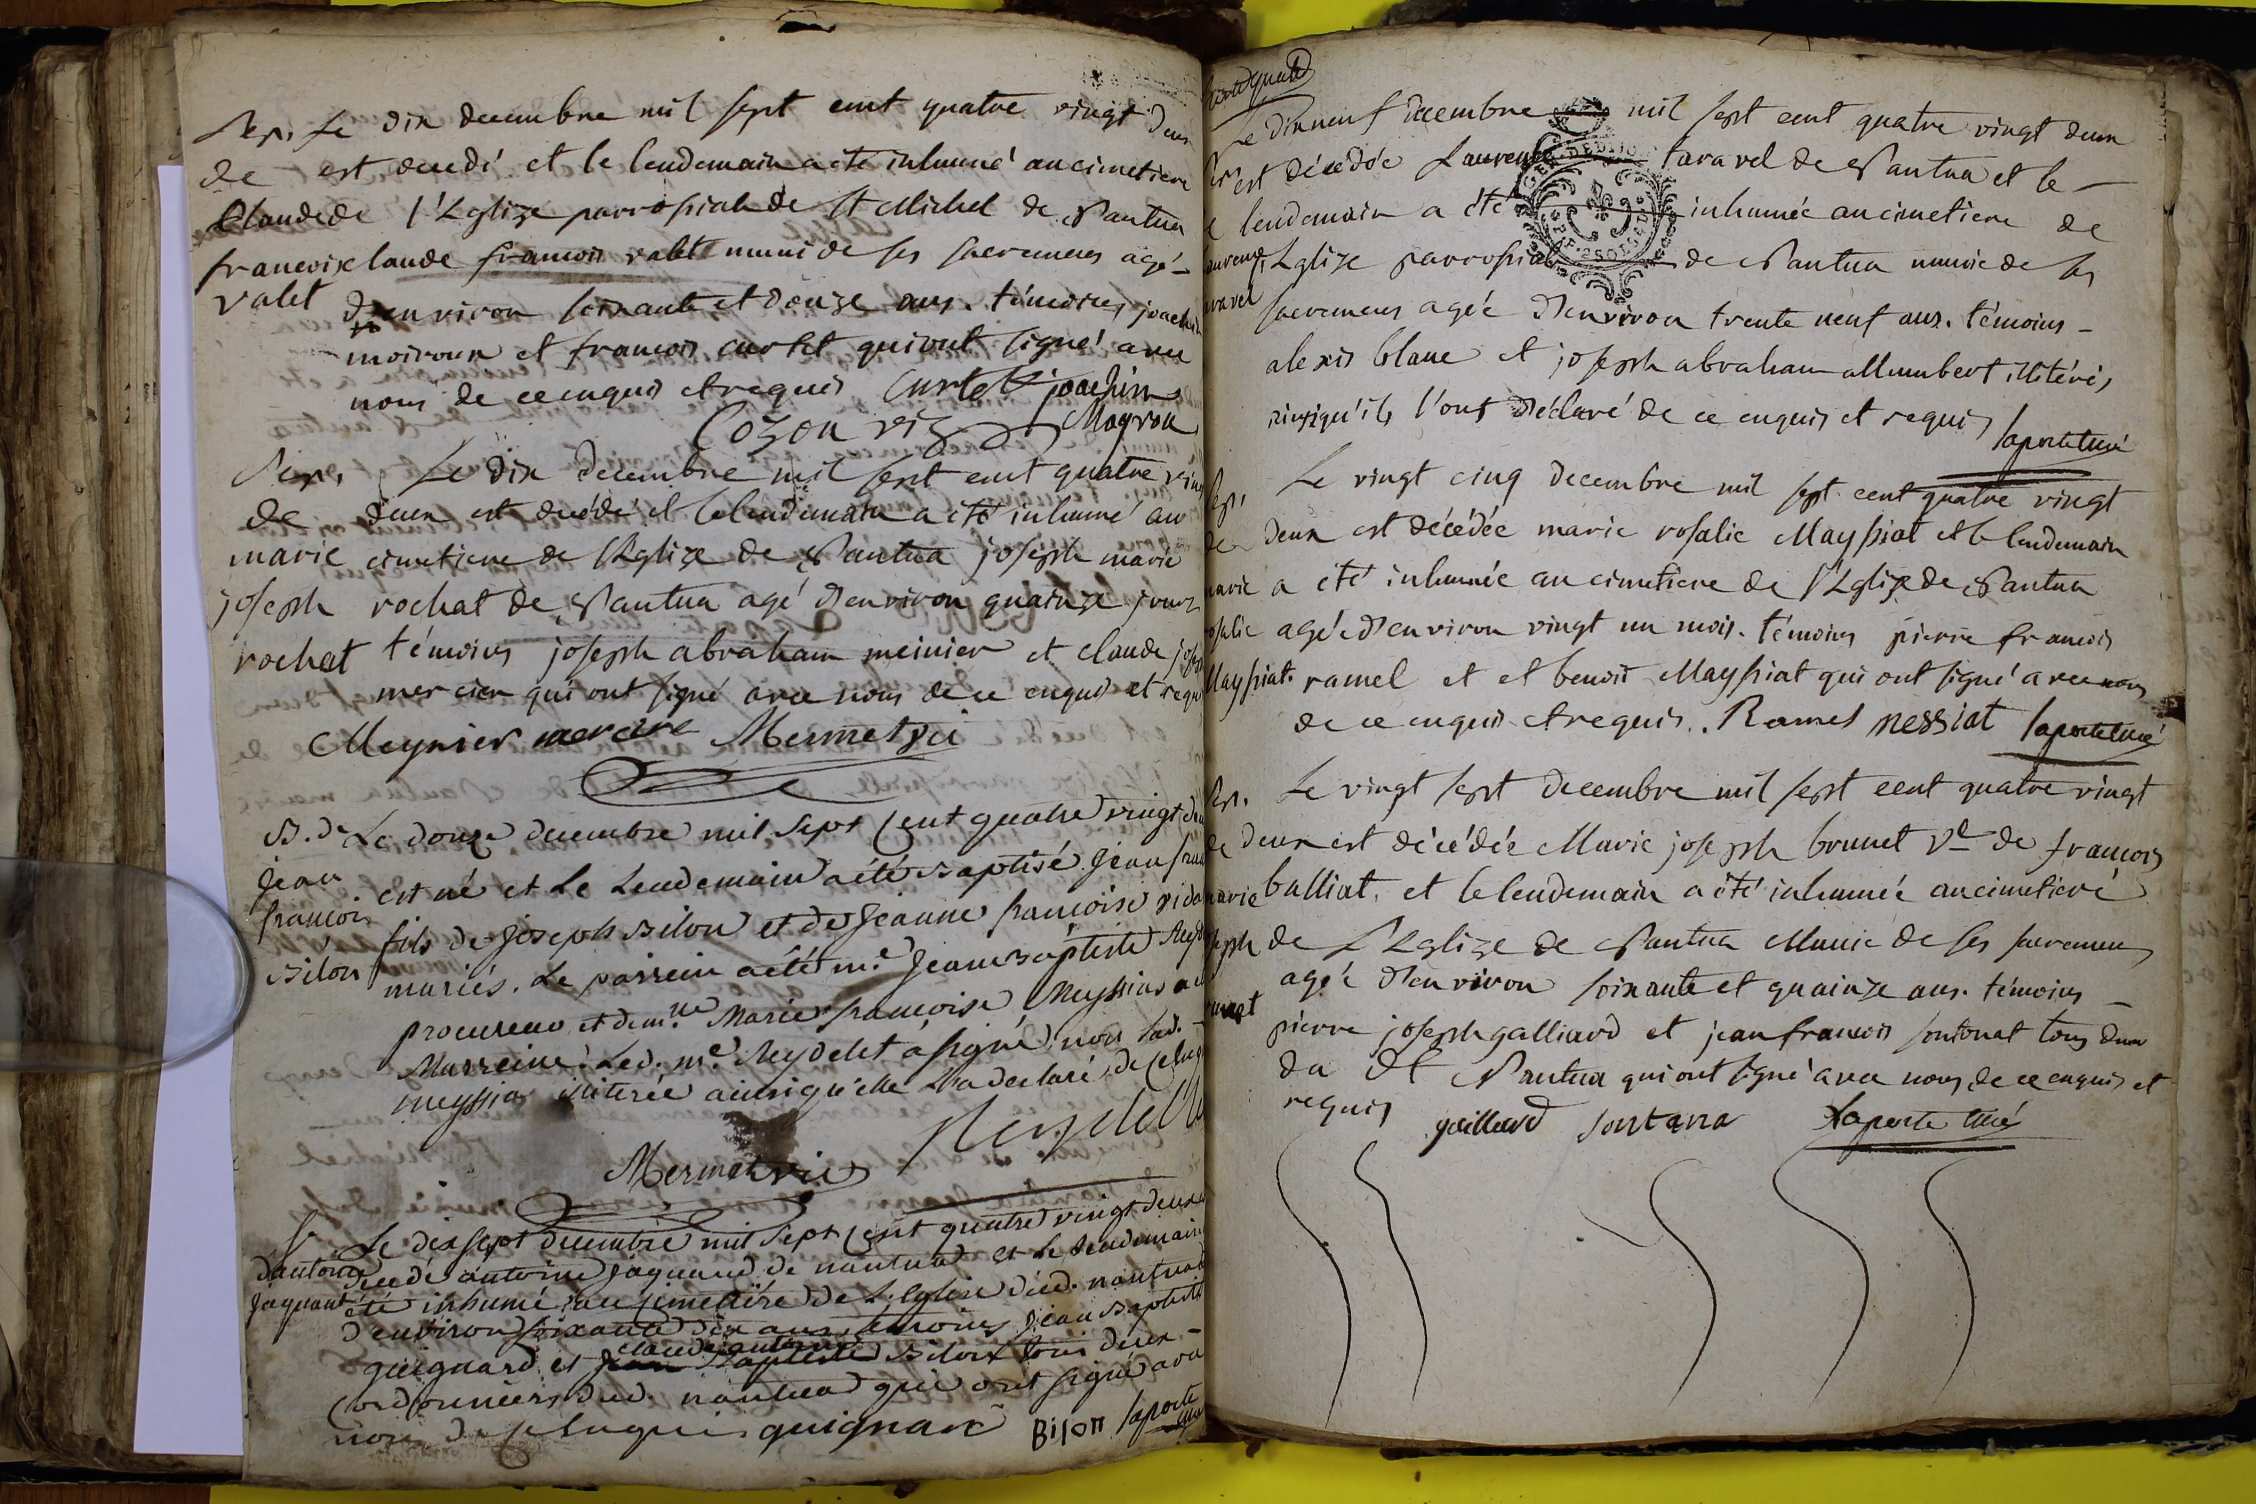 Sep. Le dix decembre mil sept cent quatre vingt deux
de est decedé et le lendemain a été inhumé au cimetiere
Claude de l'Eglize parrossiale de st Michel de Nantua
francois claude francois valet muni de ses sacremens agé
valet d'environ soixante et douze ans. témoins joachim
moiroux et francois curtet qui ont signé avec
nous de ce enquis et requis Curtet joachim
Moyrou
Cozon vic
Sep. Le dix decembre mil sept cent quatre vingt
de deux est décédé et le lendemain a été inhumé au
marie cimetiere de l'Eglize de Nantua joseph marie
joseph rochat de Nantua agé d'environ quainze jours
rochat témoins joseph abraham meinier et claude joseph
mercier qui ont signé avec nous de ce enquis et requis
Meynier mercire Mermet vic
B. de Le douze decembre mil sept cent quatre vingt deux
jean est né et le Lendemain a été Baptisé jean
francois fils de joseph Bilon et de jeanne françoise
Bilon mariés. Le parrein a été me. jean Baptiste
procureur et demlle Marie françoise Meyssiat
Marreine. Led. me. Reydelet a signé non lad.
meyssiat illiterée ainsi qu'elle l'a declaré de ce enquis
Reydellet
Mermet vic
S. Le dix sept decembre mil sept cent quatre vingt deux
d'antoine decedé antoine jaquand de nantua et le lendemain
jaquand été inhumé au cimetiére de l'eglise dud. nantua
d'environ soixante dix ans. témoins jean Baptiste
claude antoine
guignard et jean Baptiste Bilon tous deux
cordonniers dud. nantua qui ont signé avec
nous de ce enquis guignard Bilon laporte curé
Le dix neuf decembre mil sept cent quatre vingt deux
Sep. est décédée Laurence tavavel de Nantua et le
lendemain a été inhumée au cimetiere de
l'Eglize parrossiale de Nantua munie de ses
sacremens agée d'environ trente neuf ans. témoins
alexis blanc et joseph abraham allumbert illitérés
ainsi qu'ils l'ont déclaré de ce enquis et requis laporte curé
Sep. Le vingt cinq decembre mil sept cent quatre vingt
de deux est décédée marie rosalie Mayssiat et le lendemain
marie a été inhumée au cimetiere de l'Eglize de Nantua
rosalie agée d'environ vingt un mois. témoins pierre francois
Mayssiat. ramel et et benoit Mayssiat qui ont signé avec nous
de ce enquis et requis. Ramel messiat laporte curé
Sep. Le vingt sept decembre mil sept cent quatre vingt
de deux est décédée Marie joseph brunet Ve de francois
marie balliat. et le lendemain a été inhumée au cimetieré
joseph de l'Eglize de Nantua Munie de ses sacremens
brunet agée d'environ soixante et quainze ans. témoins
pierre joseph galliard et jean francois sontonat tous deux
du dt Nantua qui ont signé avec nous de ce enquis et
requis galliard sontana Laporte curé